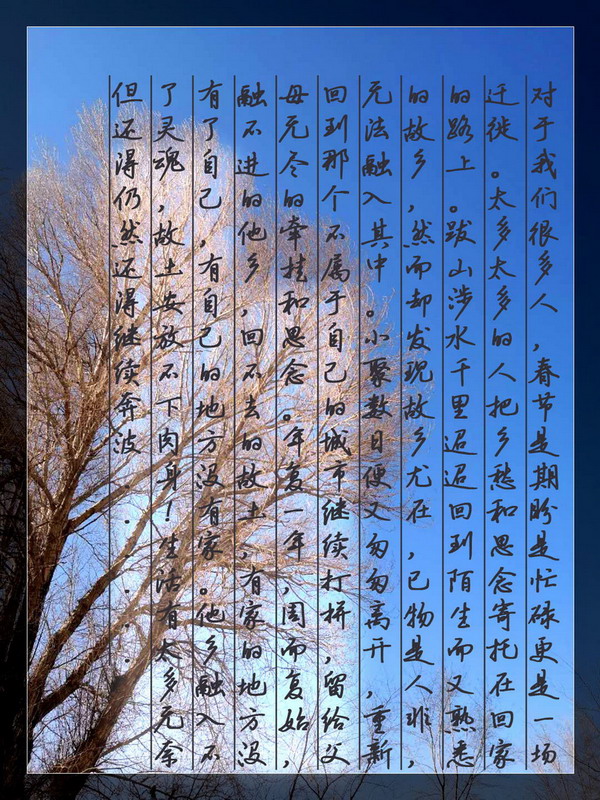 对于我们很多人,春节是期盼是忙碌更是一场
迁徙。太多太多的人把乡愁和思念寄托在回家
的路上。跋山涉水千里迢迢回到陌生而又熟悉
的故乡,然而却发现故乡尤在,已物是人非,
无法融入其中。小聚数日便又匆匆离开,重新
回到那个不属于自己的城市继续打拼,留给父
母无尽的牵挂和思念。年复一年,周而复始,
融不进的他乡,回不去的故土,有家的地方没
有了自己,有自己的地方没有家。他乡融入不
了灵魂,故土安放不下肉身!生活有太多无奈
但还得仍然还得继续奔波......